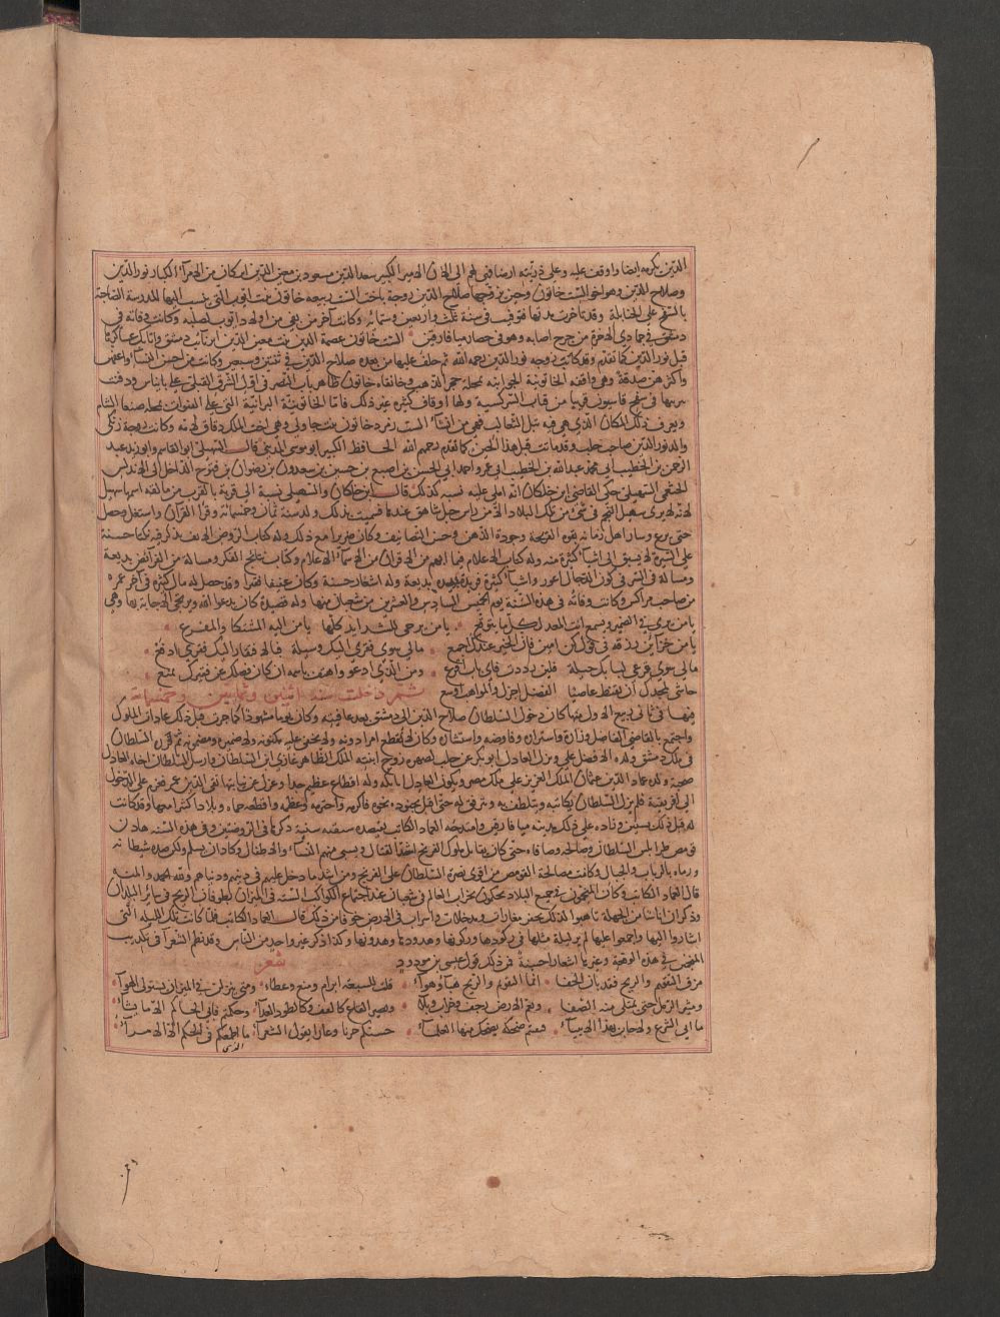 الدين يكرمه ايضا واوقف عليه وعلى ذريته ارضا فهي لهم الى الان الامير الكبير سعد الدين مسعود بن معين الدين انر كان من الامرآء الكبار نور الدين
وصلاح الدين وهو اخو الست خاتون وحين تزوجها صلاح الدين زوجه باخته الست ربيعه خاتون بنت ايوب التي تنسب اليها المدرسة الصاحبة
بالسفح على الحنابلة وقد تأخرت مدتها فتوفيت في سنة ثلث واربعين وستمائه وكانت آخر من بقي من اولاد ايوب لصلبه وكانت وفاته في
دمشق في جمادى الاخرة من جرح اصابه وهو في حصار ميافارقين الست خاتون عصمة الدين بنت معين الدين انر نائب دمشق واتابك عساكرها
قبل نور الدين كما تقدم وقد كانت زوجه نور الدين رحمه الله ثم خلف عليها من بعده صلاح الدين في ثنتين وسبعين وكانت من احسن النسآء واعفهن
واكثرهن صدقة وهي واقفة الخاتونية الجوانية بمحلة حجر الذهب وخانقاه خاتون ظاهر باب النصر في اول الشرق القبلي على بانياس ودفنت
بتربتها في سفح قاسيون قريبا من قباب السركسية ولها اوقاف كثيره غير ذلك فاما الخاتونية البرانية التي على القنوات بمحلة صنعا الشام
ويعرف ذلك المكان الذي هي فيه بتل الثعالب فهي من انشآء الست زمرد خاتون بنت جاولي وهي اخت الملك دقاق لامه وكانت زوجة زنكي
والد نور الدين صاحب حلب وقد ماتت قبل هذا الحين كما تقدم رحمهم الله الحافظ الكبير ابو موسى المديني قال السهيلي ابو القاسم وابو زيد عبد
الرحمن بن الخطيب ابي محمد عبد الله بن الخطيب ابي عمر واحمد ابي الحسن بن اصبغ بن حسين بن سعدون بن رضوان بن فتوح الداخل الى الاندلس
الخثعمي السهيلي حكى القاضي ابن خلكان انه املى عليه نسبه كذلك قال ابن خلكان والسهيلي نسبة الى قرية بالقرب من مالقه اسمها سهيل
لانه لا يرى سهيل النجم في شيء من تلك البلاد الا من راس جبل شاهق عندها فسميت بذلك ولد سنة ثمان وخمسمائة وقرا القرآن واشتغل وحصل
حتى برع وساد اهل زمانه بقوه القريحة وجودة الذهن وحسن التصانيف وكان ضريرا مع ذلك وله كتاب الروض الانف يذكر فيه نكتا حسنة
على السيرة لم يسبق الى اشيآء كثيرة منه وله كتاب الاعلام فيما ابهم من القران من الاسمآء الاعلام وكتاب نتائج الفكر ومسالة من الفرائض بديعة
ومسالة في السر في كون الدجال اعور واشيآء كثيرة فريدة بديعة وله اشعار حسنة وكان عفيفا فقيرا وقد حصل له مال كثير في آخر عمره
من صاحب مراكش وكانت وفاته في هذه السنة يوم الخميس السادس والعشرين من شعبان منها وله قصيدة كان يدعو الله ويرتجي الاجابة بها وهي
يا من يرى ما في الضمير ويسمع انت المعد لكل ما يتوقع يا من يرجى للشدايد كلها يا من اليه المشتكا والمفزع
يا من خزآئن رزقه في قول كن امنن فان الخير عندك اجمع مالي سوى فقري اليك وسيلة فبالافتقار اليك فقري ادفع
مالي سوى قرعي لبابك حيلة فلين رددت فاي باب اقرع ومن الذي ادعو واهتف باسمه ان كان فضلك عن فقيرك يمنع
حاشى لمجدك ان تقنط عاصيا الفضل اجزل والمواهب اوسع ثم دخلت سنة اثنتين وثمانين وخمسمائة
فيها في ثاني ربيع الاول منها كان دخول السلطان صلاح الدين الى دمشق بعد عافيته وكان يوما مشهودا كما جرت قبل ذلك عادات الملوك
واجتمع بالقاضي الفاضل وزاره واستزاره وفاوضه واستشاره وكان لا يقطع امرا دونه ولا يخفي عليه مكنونه ولا ضميره ومضمونه ثم قرر السلطان
في ملك دمشق ولده الافضل علي ونزل العادل ابو بكر عن حلب لصهره زوج ابنته الملك الظاهر غازي ابن السلطان وارسل السلطان اخاه العادل
صحبة ولده عماد الدين عثمان الملك العزيز على ملك مصر ويكون العادل اتابكه وله اقطاع عظيم جدا وعزل عن نيابتها تقي الدين عمر فعزم على الدخول
الى افريقية فلم يزل السلطان يكاتبه ويتلطف به ويترفق له حتى اقبل بجنوده نحوه فاكرمه واحترمه وعظمه واقطعه حماه وبلادا كثيرا معها وقد كانت
له قبل ذلك بسنين وزاده على ذلك مدينه ميا فارقين وامتدحه العماد الكاتب بقصيده سينية ذكرها في الروضتين وفي هذه السنه هادن
قومص طرابلس السلطان وصالحه وصافاه حتى كان يقاتل ملوك الفرنج اشد القتال ويسبي منهم النسآء والاطفال وكاد ان يسلم ولكن صده شيطانه
ورماه بالرباب والخبال وكانت مصالحة القومص من اقوى نصرة السلطان على الفرنج ومن اشد ما دخل عليهم في دينهم ودنياهم ولله الحمد والمنة
قال العماد الكاتب وكان المنجمون في جميع البلاد يحكمون بخراب العالم في شعبان عند اجتماع الكواكب الستة في الميزان بطوفان الريح في سائر البلدان
وذكر ان اناسا من الجهلة تاهبوا لذلك بحفر مغارات ومدخلات واسراب في الارض خوفا من ذلك قال العماد الكاتب فلما كانت تلك الليلة التي
اشاروا اليها واجمعوا عليها لم ير ليلة مثلها في ركودها وركونها وهدوها وهدوئها وكذا ذكر غير واحد من الناس وقد نظم الشعرآء في تكذيب
المنجمين في هذه الوقعة وغيرها اشعارا حسنة فمن ذلك قول عيسى بن مودود شعر
مزق التقويم والزيج فقد بان الخفا انما التقويم والزيج هبآء وهوآء قلت للسبعة ابرام ومنع وعطاء ومتى ينزلن في الميزان يستولى الهوآء
ويثير الرمل حتى يمتلئ منه الصفا ويعم الارض رجف وخراب وبلا ويصير القاع كالقف وكالطود العرآء وحكمتم فابى الحاكم الا ما يشآء
ما اتى الشرع ولا جات بهذا الانبيآء فبقيتم ضحكة يضحك منها العلمآء حسبكم خزيا وعارا ما يقول الشعرآء ما اطمعكم في الحكم الا الامرآء